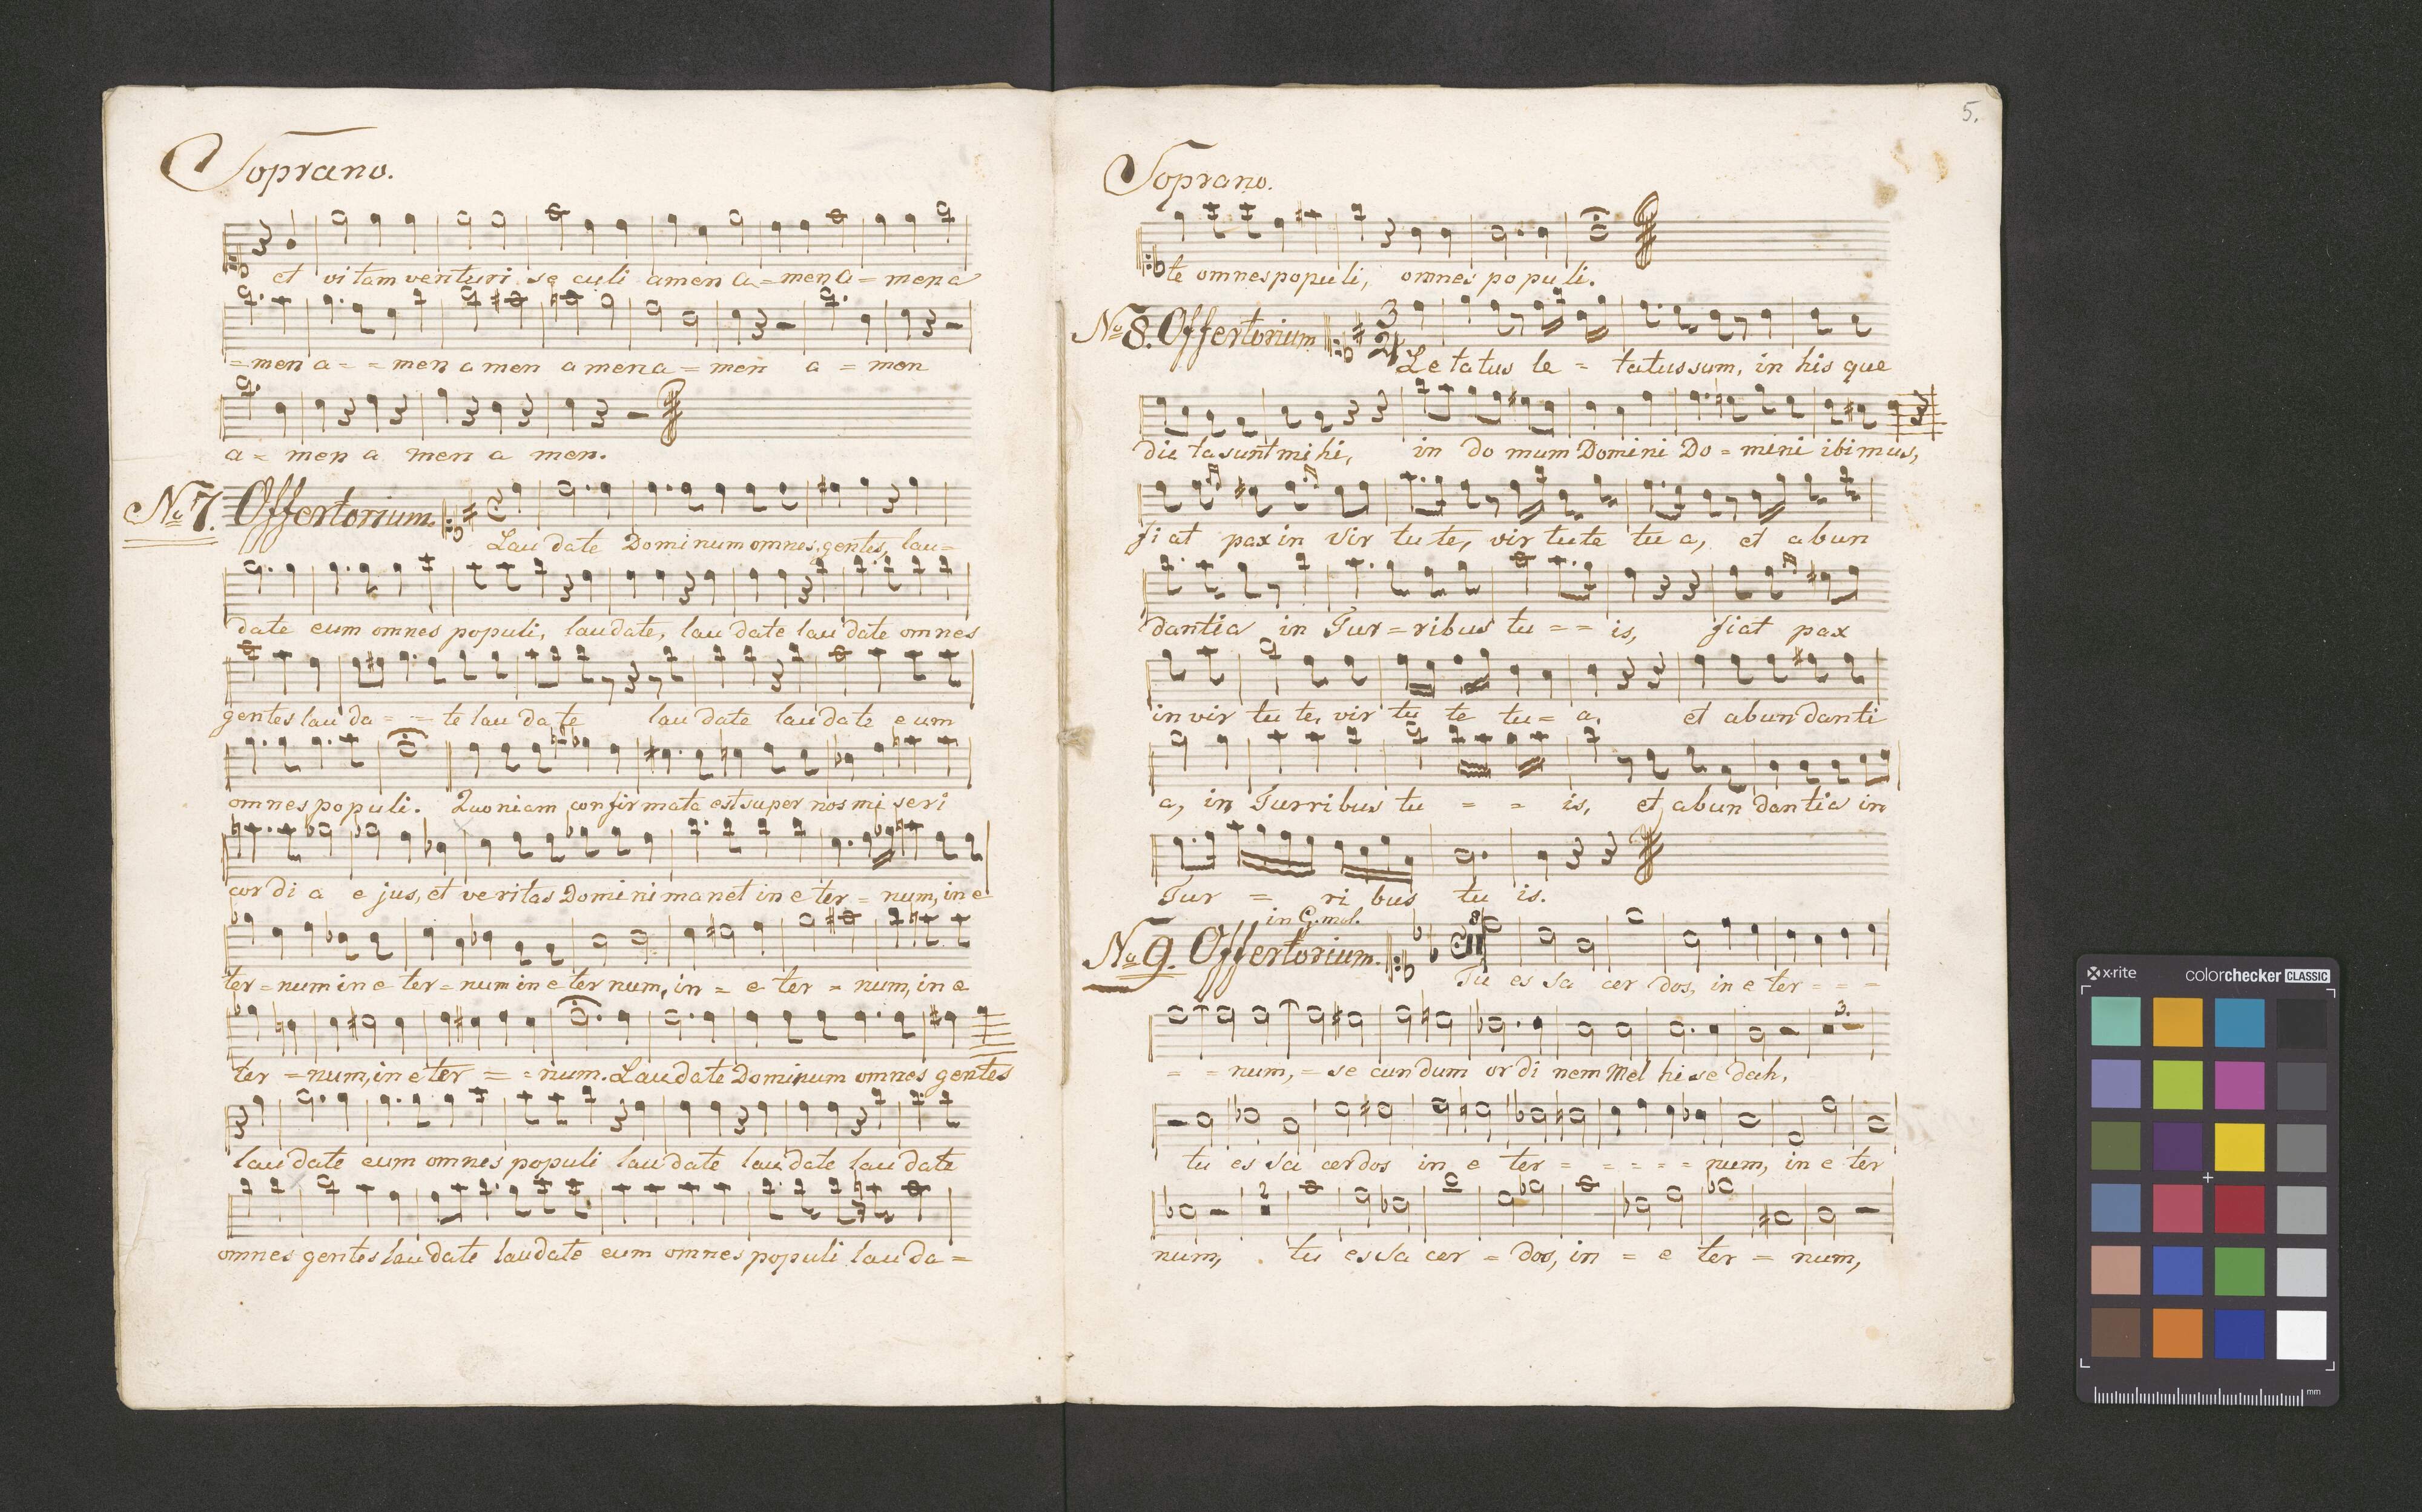 Soprano.
et vitam venturi seculi amen a=men a=men a
=men a= =men amen amen a=men a=men
a=men a men a men.
No 7. Offertorium.
Laudate Dominum omnes gentes, lau=
date eum omnes populi, laudate, laudate laudate omnes
gentes lauda= =te laudate laudate laudate eum
omnes populi. Quoniam confirmata est super nos miseri
cordia ejus, et veritas Domini manet in eter=num, in e
ter=num in eter=num in eternum, in=eter=num, in e
ter=num, in eter= =num. Laudate Dominum omnes gentes
laudate eum omnes populi laudate laudate laudate
omnes gentes laudate laudate eum omnes populi lauda=
5.
Soprano.
te omnes populi, omnes populi.
No 8. Offertorium 3 4
Letatus le=tatus sum, in his que
dicta sunt mihi, in domum Domini Do=mini ibimus,
fiat pax in virtute, virtute tua, et abun
dantia in Tur=ribus tu= =is, fiat pax
in virtute, virtute tu=a, et abundanti
a, in Turribus tu = = is, et abundantia in
Tur = ribus tuis.
in G. mol.
No 9. Offertorium.
8
Tu es Sacerdos, in eter= = =
= =num, =secundum ordinem Melhisedah,
3.
tu es Sacerdos in eter= = = = =num, in eter
2
num, tu es Sacer=dos, in=eter=num,
x·rite colorchecker CLASSIC
mm